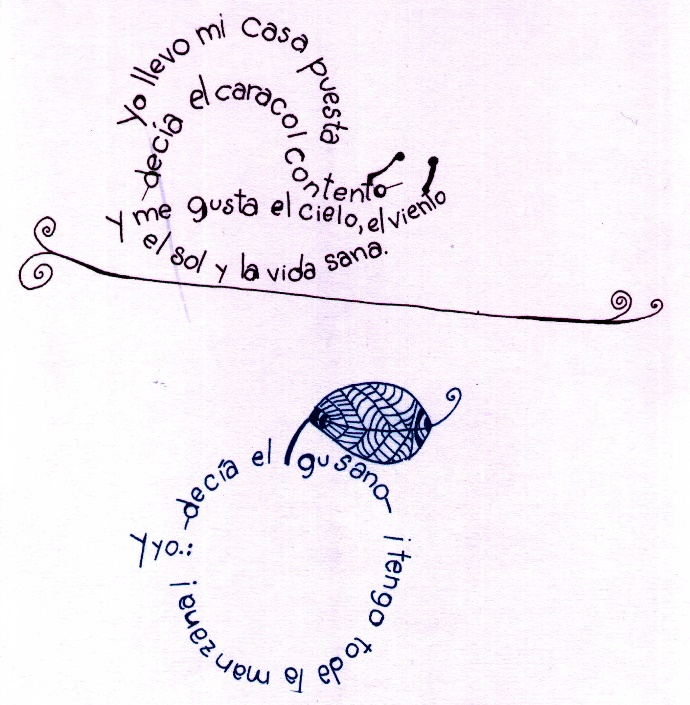 Yo llevo mi casa puesta
—decía el caracol contento—
Y me gusta el cielo, el viento
el sol y la vida sana.
Y yo.:
—decía el gusano—
¡tengo toda la manzana!